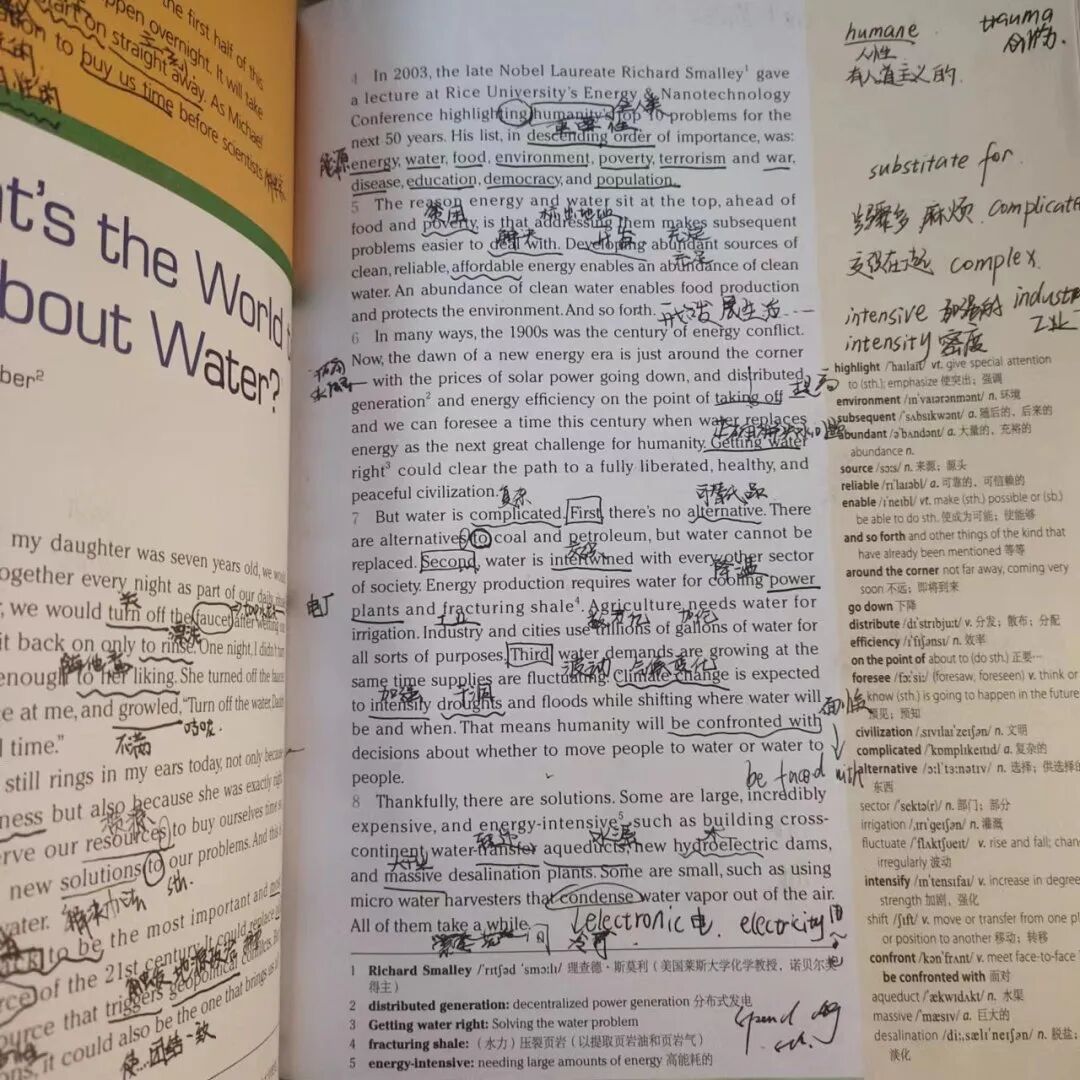 ppen overnight. It will take
the first half of this
start on straight away. As Michael
to buy us time before scientists
at's the World
bout Water?
ber²
my daughter was seven years old, we
ogether every night as part of our daily
, we would turn off the faucet after wetting
it back on only to rinse. One night, I didn't
enough to her liking. She turned off the
e at me, and growled, "Turn off the water,
l time."
不满
still rings in my ears today, not only because
ness but also because she was exactly
erve our resources to buy ourselves time
new solutions to our problems. And
sth.
解决办法
water.
back to be the most important and
rce of the 21st century. It could replace
ource that triggers geopolitical conflicts.
ons, it could also be the one that brings us
使…团结一致
4 In 2003, the late Nobel Laureate Richard Smalley¹ gave
a lecture at Rice University's Energy & Nanotechnology
Conference highlighting humanity's top 10 problems for the
next 50 years. His list, in descending order of importance, was:
能源
energy, water, food, environment, poverty, terrorism and war,
disease, education, democracy, and population.
5 The reason energy and water sit at the top, ahead of
food and poverty is that addressing them makes subsequent
problems easier to deal with. Developing abundant sources of
clean, reliable, affordable energy enables an abundance of clean
water. An abundance of clean water enables food production
and protects the environment. And so forth.
6 In many ways, the 1900s was the century of energy conflict.
Now, the dawn of a new energy era is just around the corner
— with the prices of solar power going down, and distributed
generation² and energy efficiency on the point of taking off
提高
and we can foresee a time this century when water replaces
energy as the next great challenge for humanity. Getting water
right³ could clear the path to a fully liberated, healthy, and
peaceful civilization.
复杂
可替代品
7 But water is complicated. First, there's no alternative. There
are alternatives to coal and petroleum, but water cannot be
replaced. Second, water is intertwined with every other sector
of society. Energy production requires water for cooling power
电厂
plants and fracturing shale⁴. Agriculture needs water for
irrigation. Industry and cities use trillions of gallons of water for
all sorts of purposes. Third, water demands are growing at the
波动
气候变化
same time supplies are fluctuating. Climate change is expected
加强
to intensify droughts and floods while shifting where water will
be and when. That means humanity will be confronted with
decisions about whether to move people to water or water to
people.
be faced with
8 Thankfully, there are solutions. Some are large, incredibly
expensive, and energy-intensive⁵, such as building cross-
continent water-transfer aqueducts, new hydroelectric dams,
and massive desalination plants. Some are small, such as using
micro water harvesters that condense water vapor out of the air.
All of them take a while.
electronic 电
electricity
1 Richard Smalley /ˈrɪtʃəd ˈsmɔːlɪ/ 理查德·斯莫利（美国莱斯大学化学教授，诺贝尔奖
得主）
2 distributed generation: decentralized power generation 分布式发电
3 Getting water right: Solving the water problem
4 fracturing shale:（水力）压裂页岩（以提取页岩油和页岩气）
5 energy-intensive: needing large amounts of energy 高能耗的
humane
trauma
人性
有人道主义的
创伤
substitate for
步骤多 麻烦 complicate
complex
intensive 加强的 industr
工业
intensity 密度
highlight /ˈhaɪlaɪt/ vt. give special attention
to (sth.); emphasize 使突出；强调
environment /ɪnˈvaɪərənmənt/ n. 环境
subsequent /ˈsʌbsɪkwənt/ a. 随后的、后来的
abundant /əˈbʌndənt/ a. 大量的、充裕的
abundance n.
source /sɔːs/ n. 来源；源头
reliable /rɪˈlaɪəbl/ a. 可靠的、可信赖的
enable /ɪˈneɪbl/ vt. make (sth.) possible or (sb.)
be able to do sth. 使成为可能；使能够
and so forth and other things of the kind that
have already been mentioned 等等
around the corner not far away, coming very
soon 不远；即将到来
go down 下降
distribute /dɪˈstrɪbjuːt/ v. 分发；散布；分配
efficiency /ɪˈfɪʃnsɪ/ n. 效率
on the point of about to (do sth.) 正要…
foresee /fɔːˈsiː/ (foresaw, foreseen) v. think or
know (sth.) is going to happen in the future
预见；预知
civilization /ˌsɪvɪlaɪˈzeɪʃən/ n. 文明
complicated /ˈkɒmplɪkeɪtɪd/ a. 复杂的
alternative /ɔːlˈtɜːnətɪv/ n. 选择；供选择的
东西
sector /ˈsektə(r)/ n. 部门；部分
irrigation /ˌɪrɪˈgeɪʃən/ n. 灌溉
fluctuate /ˈflʌktʃueɪt/ v. rise and fall; chan
irregularly 波动
intensify /ɪnˈtensɪfaɪ/ v. increase in degree
strength 加剧、强化
shift /ʃɪft/ v. move or transfer from one pl
or position to another 移动；转移
confront /kənˈfrʌnt/ v. meet face-to-face
be confronted with 面对
aqueduct /ˈækwɪdʌkt/ n. 水渠
massive /ˈmæsɪv/ a. 巨大的
desalination /diːˌsælɪˈneɪʃən/ n. 脱盐；
淡化